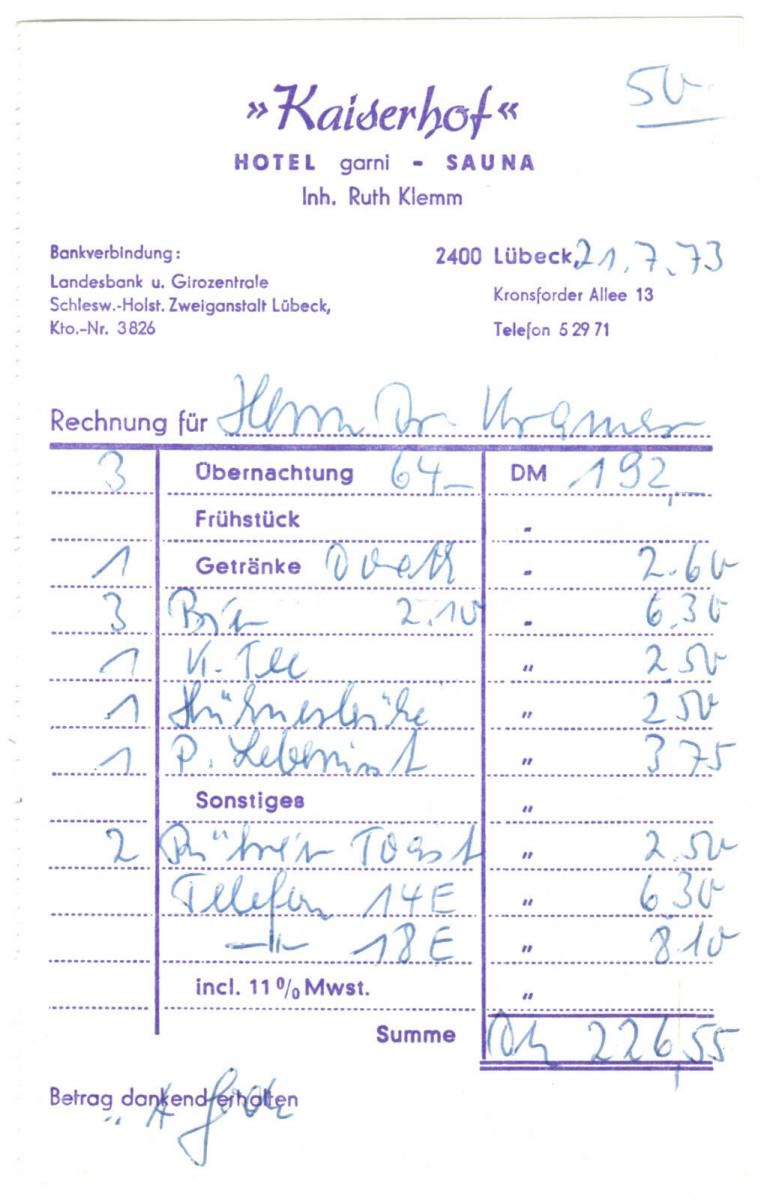 50
»Kaiserhof«
HOTEL garni - SAUNA
Inh. Ruth Klemm
Bankverbindung:
Landesbank u. Girozentrale
Schlesw.-Holst. Zweiganstalt Lübeck,
Kto.-Nr. 3826
2400 Lübeck, 21.7.73
Kronsforder Allee 13
Telefon 5 29 71
Rechnung für Herrn Dr. Kramer
3 Übernachtung 64,- DM 192,-
Frühstück "
1 Getränke " 2.60
3 Bier 2.10 " 6,30
1 K. Tee " 2,50
1 Hühnerbrühe " 2,50
1 P. " 3.75
Sonstiges "
2 Rührei Toast " 2.50
Telefon 14E " 6.30
-"- 18E " 8.10
incl. 11% Mwst. "
Summe DM 226,55
Betrag dankend erhalten